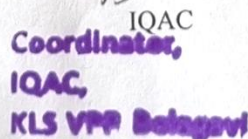 IQAC
Coordinator,
IQAC,
KLS VPP Belagavi